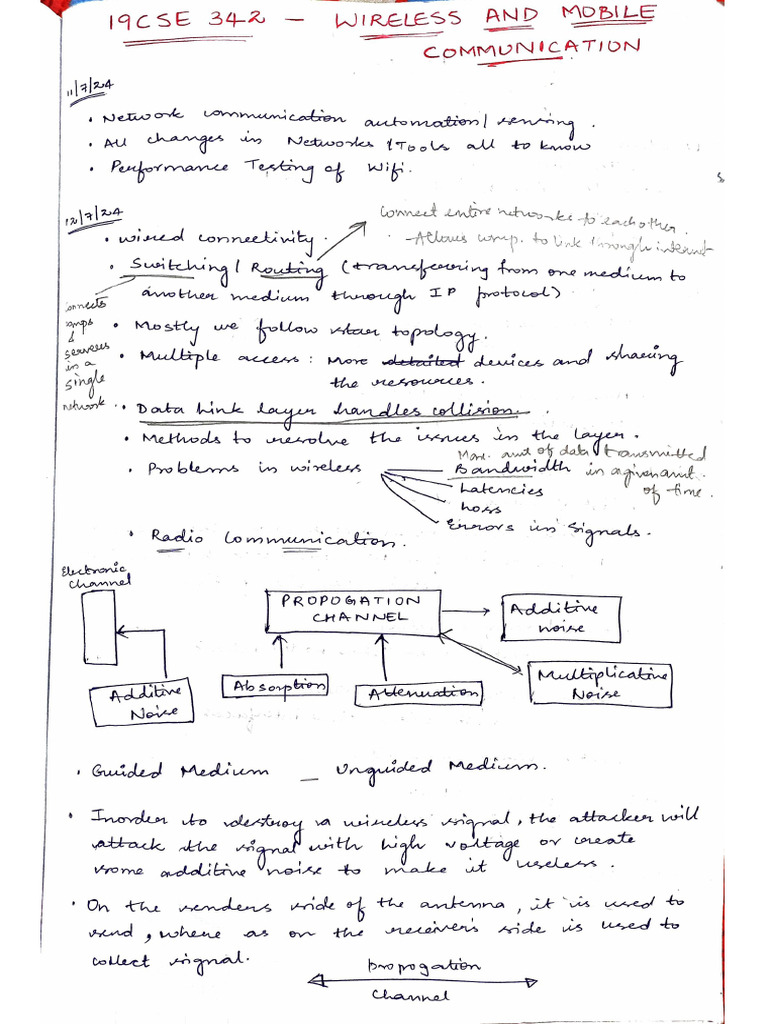 19CSE 342 - WIRELESS AND MOBILE
COMMUNICATION
11/7/24
• Network communication automation/sensing.
• All changes in Networks/Tools all to know
• Performance Testing of Wifi.
12/7/24
Connect entire networks to each other.
- Allows comp. to link through internet
• Wired connectivity.
• Switching/Routing (transferring from one medium to
another medium through IP protocol)
connects
comps
&
servers
in a
single
network.
• Mostly we follow star topology.
• Multiple access: More detailed devices and sharing
the resources.
• Data link layer handles collision.
• Methods to resolve the issues in the layer.
• Problems in wireless
More amt of data transmitted
Bandwidth in a given amt.
of time.
Latencies
Loss
Errors in signals.
• Radio Communication.
Electronic
Channel
Additive
Noise
PROPOGATION
CHANNEL
Absorption
Attenuation
Additive
noise
Multiplicative
Noise
• Guided Medium _ Unguided Medium.
• Inorder to destroy a wireless signal, the attacker will
attack the signal with high voltage or create
some additive noise to make it useless.
• On the senders side of the antenna, it is used to
send, where as on the receiver's side is used to
collect signal.
Propogation
Channel